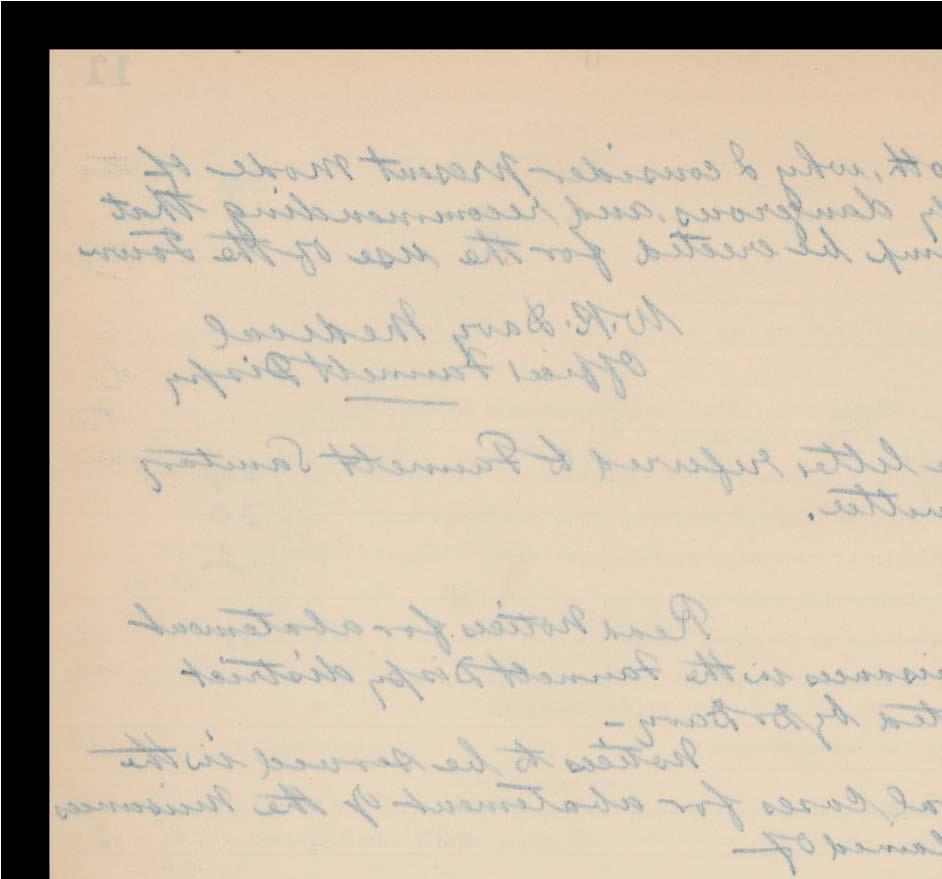 11
oth, why I consider present mode of
ly dangerous, and recommending that
ump be erected for the use of the Town
W. R. Davy Medical
Officer Fannett Dispy
e letter referred to Fannett Sanitary
mittee.
Read Notices for abatement
isances in the Fannett Dispy district
ted by Dr Davy —
Notices to be served in the
al Cases for abatement of the nuisances
lained of —